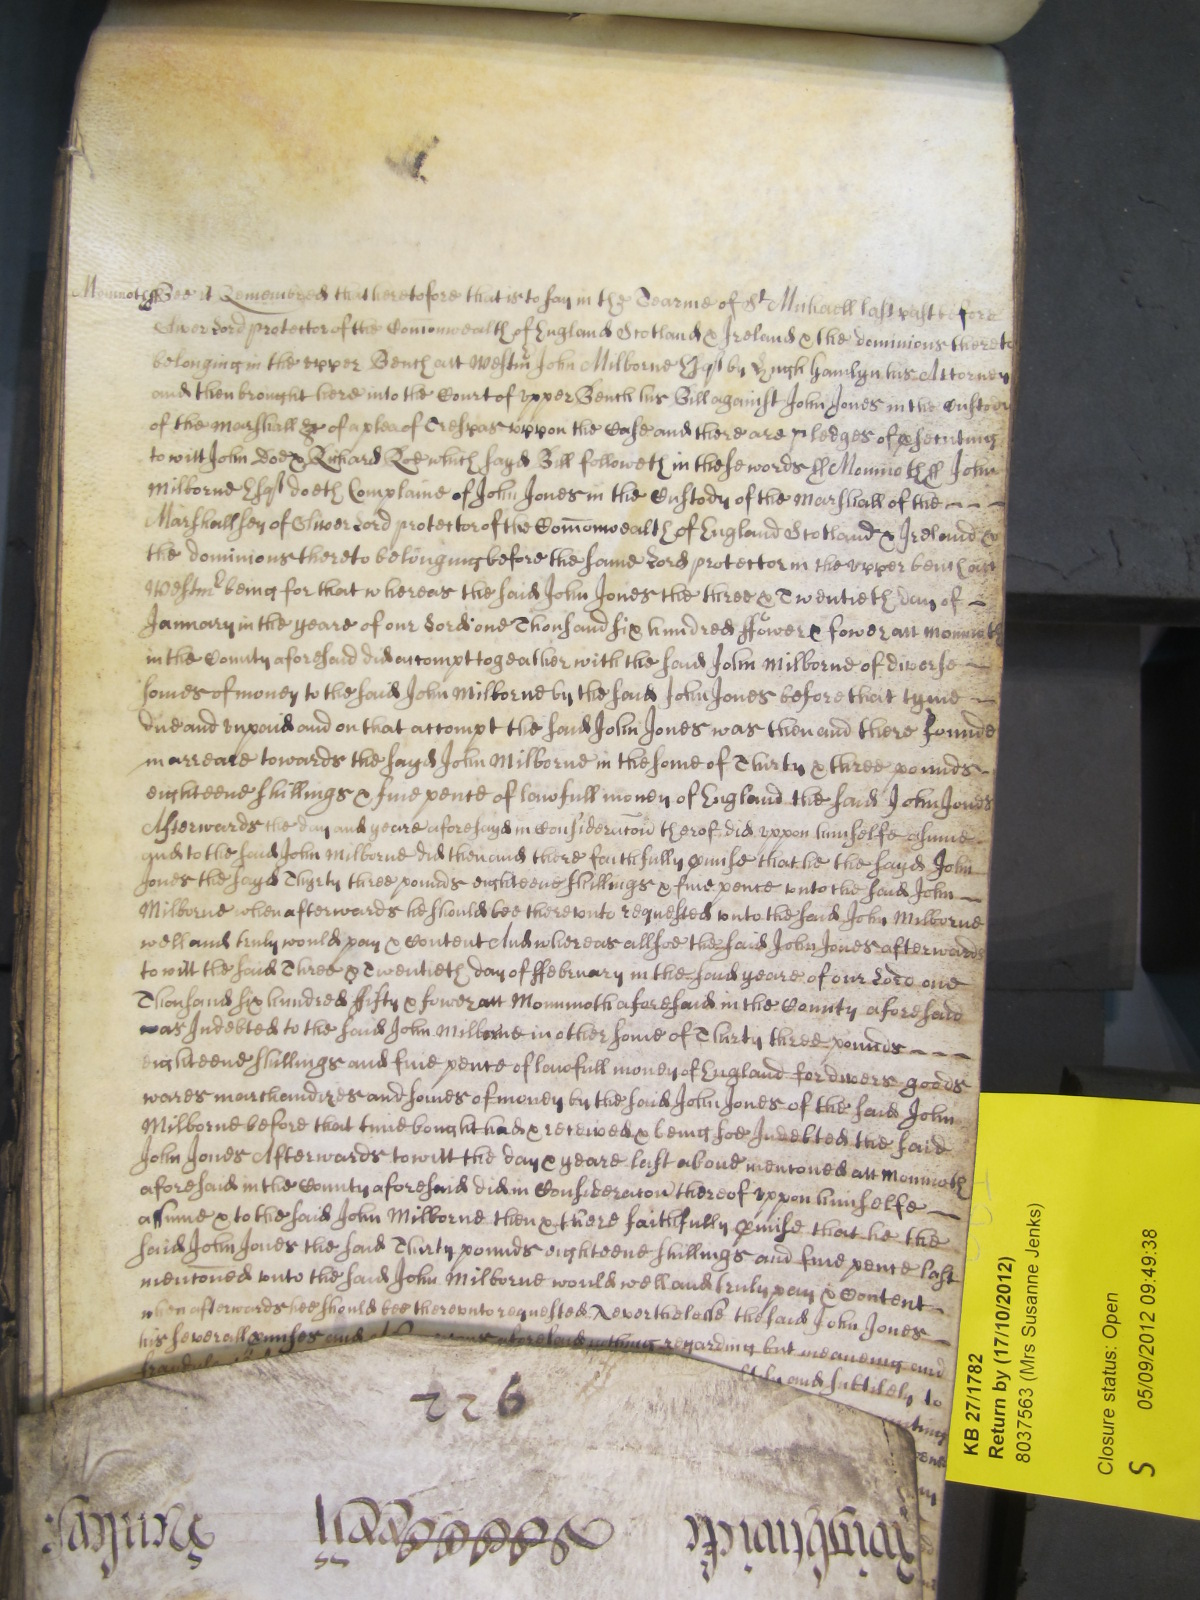 Monmoth ss Bee it Remembred that heretofore that is to say in the Tearme of St Michaell last past before
Oliver Lord protector of the Comonwealth of England Scotland & Ireland & the dominions thereto
belonging in the upper Bench att Westmr John Milborne Esqr by Hugh Hamlyn his Attorney
and then brought here into the Court of upper Bench his Bill against John Jones in the Custody
of the Marshall &c of a plea of Trespas uppon the Case and there are pledges of psecuting
to witt John Doe & Richard Roe which sayd Bill followeth in these words ss Monmoth ss John
Milborne Esqr doeth Complaine of John Jones in the Custody of the Marshall of the
Marshallsey of Oliver Lord protector of the Comonwealth of England Scotland & Ireland &
the dominions thereto belonging before the same Lord protector in the upper bench att
Westmr being for that whereas the said John Jones the three & Twentieth day of
January in the yeare of our Lord one Thousand six hundred ffower & fower att Monmoth
in the County aforesaid did accompt togeather with the said John Milborne of diverse
somes of money to the said John Milborne by the said John Jones before that tyme
due and unpaid and on that accompt the said John Jones was then and there founde
in arreare towards the sayd John Milborne in the some of Thirty & three pounds
eighteene shillings & five pence of lawfull money of England the said John Jones
Afterwards the day and yeare aforesayd in Consideracon therof did uppon himselfe assume
and to the said John Milborne did then and there faithfully pmise that he the sayd John
Jones the sayd Thirty three pounds eighteene shillings & five pence unto the said John
Milborne when afterwards he should bee thereunto requested unto the said John Milborne
well and truly would pay & Content And whereas allsoe the said John Jones afterwards
to witt the said Three & Twentieth day of ffebruary in the said yeare of our Lord one
Thousand six hundred ffifty & fower att Monmoth aforesaid in the County aforesaid
was Indebted to the said John Milborne in other some of Thirty three pounds
eighteene shillings and five pence of lawfull money of England for divers goods
wares marchandizes and somes of money by the said John Jones of the said John
Milborne before that time bought had & received & being soe Indebted the said
John Jones Afterwards to witt the day & yeare last above mentoned att Monmoth
aforesaid in the County aforesaid did in Consideracon thereof uppon himselfe
assume & to the said John Milborne then & there faithfully pmise that he the
said John Jones the said Thirty pounds eighteene shillings and five pence last
mentoned unto the said John Milborne would well and truly pay & Content
when afterwards hee should bee thereunto requested Neverthelesse the said John Jones
his severall pmises and aforesaid nothing regarding but meaneing and
and subtilely to
226
KB 27/1782
Return by (17/10/2012)
8037563 (Mrs Susanne Jenks)
Closure status: Open
S 05/09/2012 09:49:38